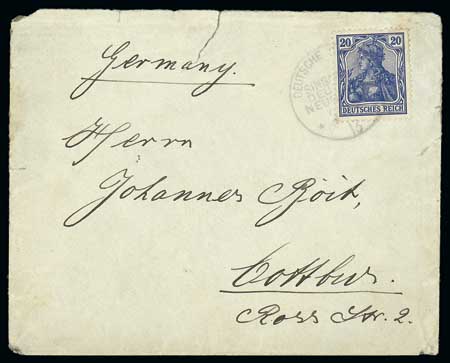 Germany.
Herrn
Johannes
Cottbus.
Ross Str. 2.
20 20
DEUTSCHES REICH
DEUTSCHE